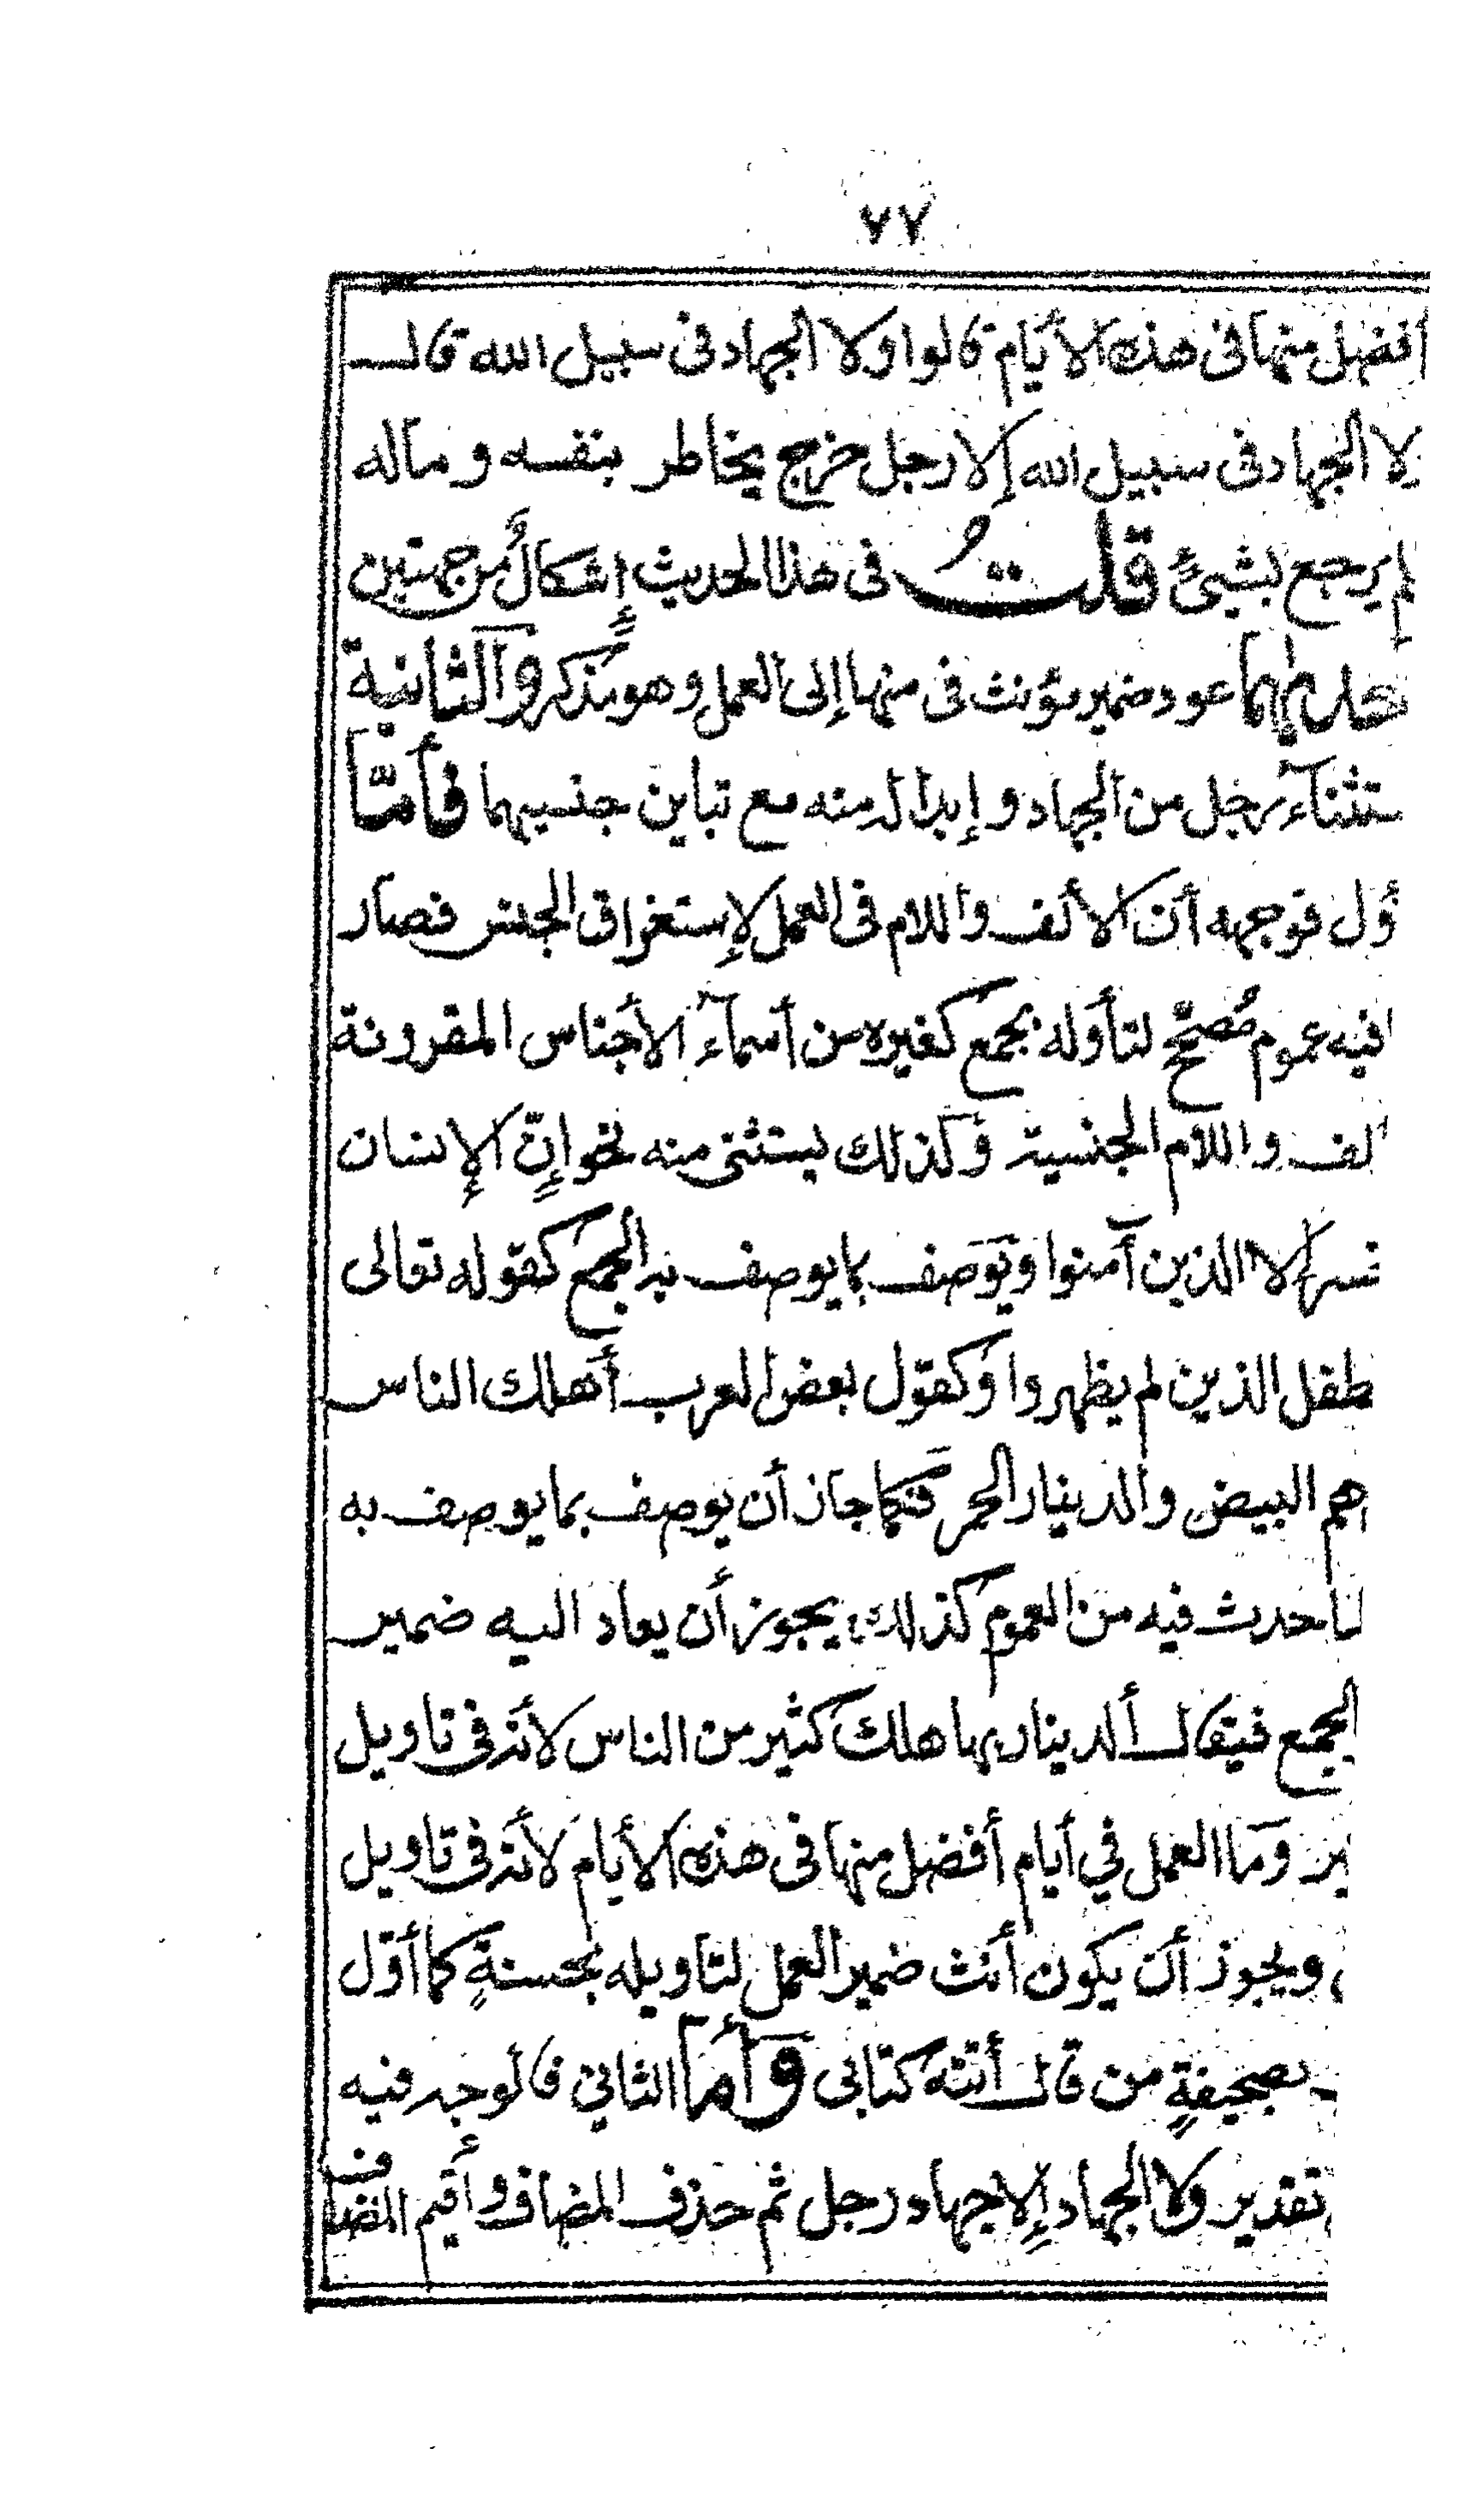 ٧٧
أفضل منها فى هذه الأيام قالوا ولا الجهاد فى سبيل الله قال
ولا الجهاد فى سبيل الله إلا رجل خرج يخاطر بنفسه وماله
لم يرجع بشئ قلتُ فى هذا الحديث إشكالٌ من جهتين
عود ضمير مؤنث فى منها إلى العمل وهو مذكر والثانية
ستثناء رجل من الجهاد وإبداله منه مع تباين جنسيهما فأمّا
ؤل فوجهه أن الألف واللام فى العمل لإستغراق الجنس فصار
فيه عموم مُصحّح لتأوله بجمع كغيره من أسماء الأجناس المقرونة
لف واللام الجنسية وكذلك يستثنى منه نحو إنّ الإنسان
خسر إلا الذين آمنوا ويوصف بما يوصف به الجمع كقوله تعالى
طفل الذين لم يظهروا وكقول بعض العرب أهلك الناس
هم البيض والدينار الحمر فكما جاز أن يوصف بما يوصف به
لما حدث فيه من العموم كذلك يجوز أن يعاد اليه ضمير
الجمع فيقال ألدينار بها هلك كثير من الناس لأنه فى تاويل
ير وما العمل في أيام أفضل منها فى هذه الأيام لأنه فى تاويل
ويجوز أن يكون أنث ضمير العمل لتاويله بحسنةٍ كما أوّل
بصحيفةٍ من قال أتته كتابى وأما الثاني فالوجه فيه
تقدير ولا الجهاد إلا جهاد رجل ثم حذف المضاف وأقيم المضاف